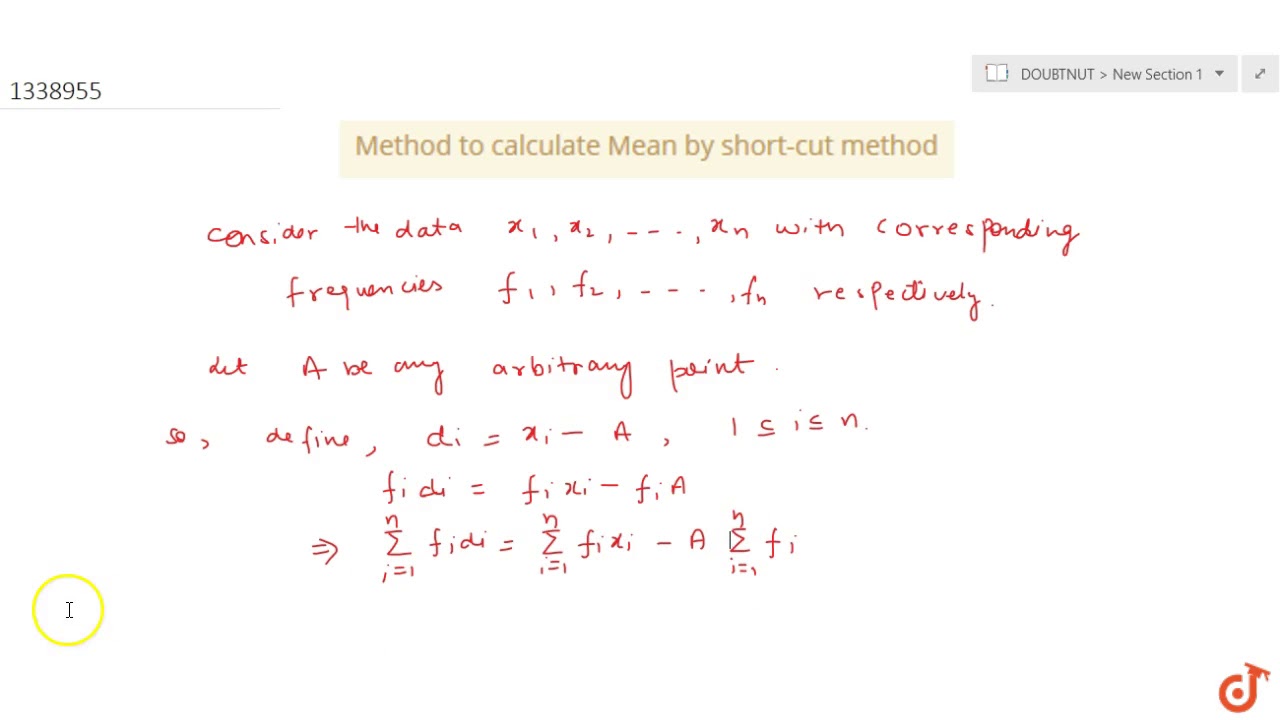 DOUBTNUT > New Section 1
1338955
Method to calculate Mean by short-cut method
Consider the data x₁, x₂, ----, xₙ with corresponding
frequencies f₁, f₂, ----, fₙ respectively.
Let A be any arbitrary point.
so, define, dᵢ = xᵢ - A, 1 ≤ i ≤ n.
fᵢdᵢ = fᵢxᵢ - fᵢA
⇒ ∑ⁿᵢ₌₁ fᵢdᵢ = ∑ⁿᵢ₌₁ fᵢxᵢ - A ∑ⁿᵢ₌₁ fᵢ